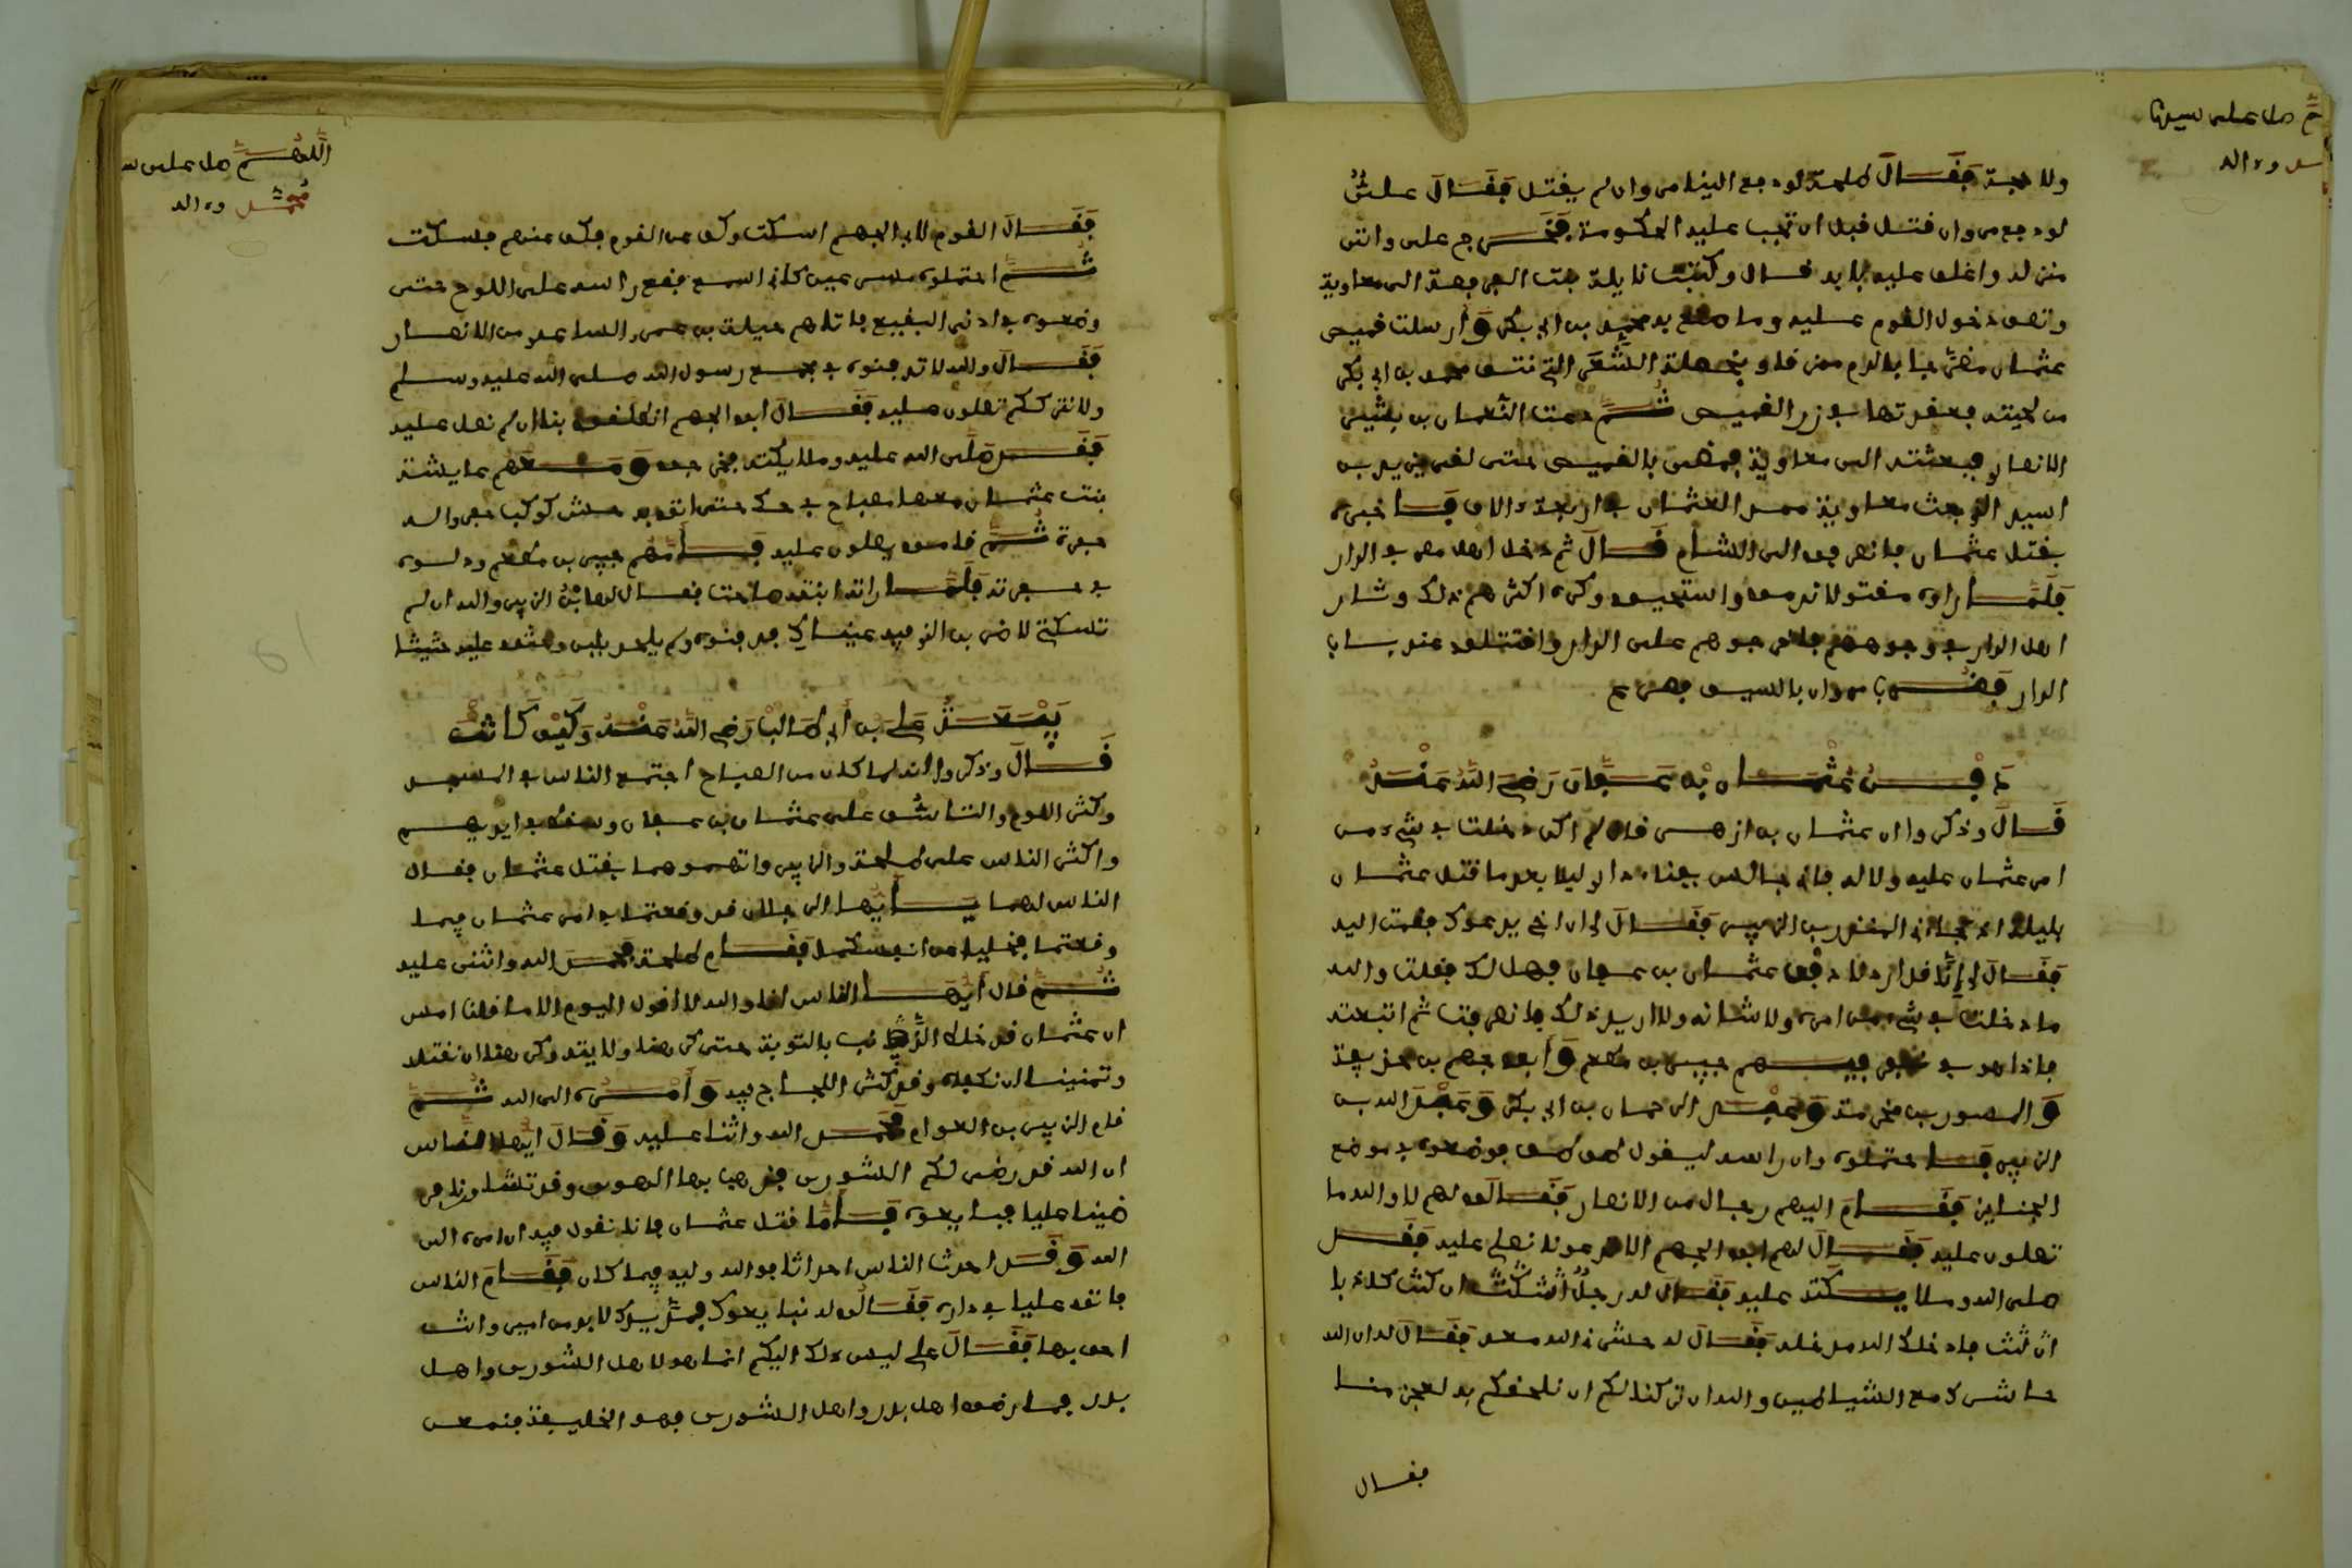 ولا حجة فقال طلحة لو دفع الينا مروان لم يقتل فقال علي
لو دفع مروان قتل قبل ان تجب عليه الحكومة فخرج علي واتى
منزله واغلق عليه بابه قال وكتبت نايلة بنت الفرافصة الى معاوية
وتصف دخول القوم عليه وما صنع به محمد بن ابي بكر وأرسلت قميص
عثمان مضرجا بالدم ممزقا وبخصلة الشعر التي نتف محمد بن ابي بكر
من لحيته فعقدتها في زر القميص ثم دعت النعمان بن بشير
الانصاري فبعثته الى معاوية فمضى بالقميص حتى لقي يزيد بن
اسيد الذي بعث معاوية ممدا لعثمان في اربعة الاف فأخبره
بقتل عثمان فانصرفوا الى الشام قال ثم دخل اهل مصر في الدار
فلما راوه مقتولا ندموا واستحيوا وكره اكثرهم ذلك وثار
اهل الدار في وجوههم فاخرجوهم على الدار واقتتلوا عند باب
الدار فضرب مروان بالسيف فصرع
دفن عثمان بن عفان رضي الله عنه
قال وذكروا ان عثمان بن ازهر قال لم اكن دخلت في شيء من
امر عثمان عليه ولا له فاني جالس بفناء داري ليلا بعد ما قتل عثمان
بليلة اذ جاءني المنذر بن الزبير فقال لي ان اخي يدعوك فقمت اليه
فقال لي إنا قد اردنا دفن عثمان بن عفان فهل لك فقلت والله
ما دخلت في شيء من امره ولا شانه ولا اريد ذلك فانصرفت ثم اتبعته
فاذا هو في نفر فيهم جبير بن مطعم وأبو جهم بن حذيفة
والمسور بن مخرمة وعبد الرحمان بن ابي بكر وعبد الله بن
الزبير فاحتملوه وان راسه ليقول طق طق فوضعوه في موضع
الجنايز فقام اليهم رجال من الانصار فقالوا لهم لا والله ما
تصلون عليه فقال لهم ابو الجهم الا تدعونا نصلي عليه فقد
صلى الله وملايكته عليه فقال له رجل ان كنت كاذبا
فادخلك الله مدخله فقال له حشرني الله معه فقال له ان الله
حاشرك مع الشياطين والله ان تركنا لكم ان نلحقكم به لعجز منا
فقال
اللهم صل على سيدنا
محمد وءاله
فقال القوم لابي الجهم اسكت وكف عن القوم فكف عنهم فسكت
ثم احتملوه مسرعين كاني اسمع وقع راسه على اللوح حتى
وضعوه في ادنى البقيع فاتاهم جبلة بن عمر الساعدي من الانصار
فقال والله لا تدفنوه في بقيع رسول الله صلى الله عليه وسلم
ولا نترككم تصلون عليه فقال ابو الجهم انطلقوا بنا ان لم نصل عليه
فقد صلى الله عليه وملايكته فخرجوا ومعهم عايشة
بنت عثمان معها مصباح في حك حتى اتوا به حش كوكب فحفروا له
حفرة ثم قاموا يصلون عليه فأمهم جبير بن مطعم ودلوه
في حفرته فلما راته ابنته صاحت فقال لها ابن الزبير والله ان لم
تسكتي لاضربن الذي فيه عيناك فدفنوه ولم يلحد بلبن وحثوا عليه حثيثا
بيعة علي بن أبي طالب رضي الله عنه وكيف كانت
قال وذكروا انه لما كان من الصباح اجتمع الناس في المسجد
وكثر اللوم والتاسف على عثمان بن عفان وسقط في ايديهم
واكثر الناس على طلحة والزبير واتهموهما بقتل عثمان فقال
الناس لهما يأيها الرجلان قد وقعتما في امر عثمان فيما
وقعتما فخليا عن انفسكما فقام طلحة فحمد الله واثنى عليه
ثم قال أيها الناس انا والله لا نقول اليوم الا ما قلنا امس
ان عثمان قد خلط الذنب بالتوبة حتى كرهنا ولايته وكرهنا ان نقتله
وتمنينا ان نكفاه وقد كثر اللجاج فيه وأمره الى الله ثم
قام الزبير بن العوام فحمد الله واثنا عليه وقال ايها الناس
ان الله قد رضي لكم الشورى فذهب بها الهوى وقد تشاورنا فر
ضينا عليا فبايعوه فأما قتل عثمان فانا نقول فيه ان امره الى
الله وقد احدث الناس احداثا والله وليه فيما كان فقام الناس
فاتوا عليا في داره فقالوا له نبايعوك فمد يدك لا بد من امير وانت
احق بها فقال علي ليس ذلك اليكم انما هو لاهل الشورى واهل
بدر فمن ارضوه اهل بدر واهل الشورى فهو الخليفة فنجمعن
اللهم صل على سيدنا
محمد وءاله